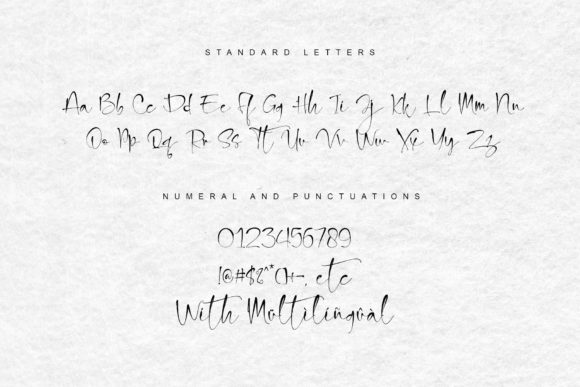 STANDARD LETTERS
Aa Bb Cc Dd Ee Ff Gg Hh Ii Jj Kk Ll Mm Nn
Oo Pp Qq Rr Ss Tt Uu Vv Ww Xx Yy Zz
NUMERAL AND PUNCTUATIONS
0123456789
!@#$%^*()+-, etc
With Multilingual